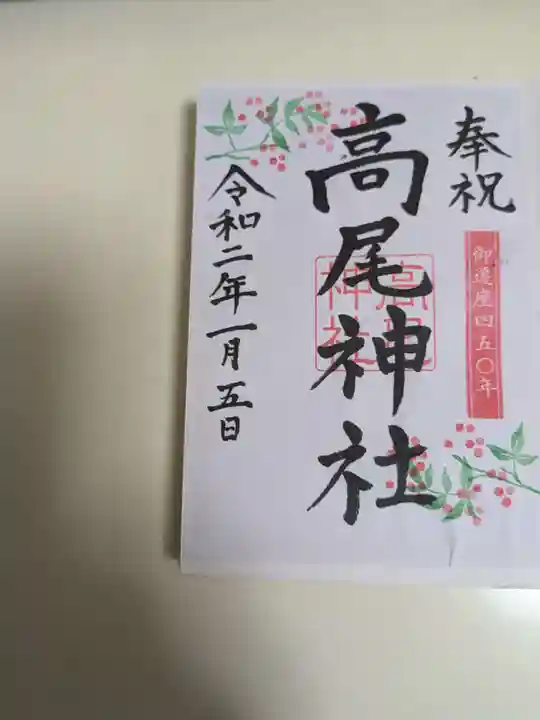 奉祝
御遷座四五〇年
高尾神社
高尾神社
令和二年一月五日